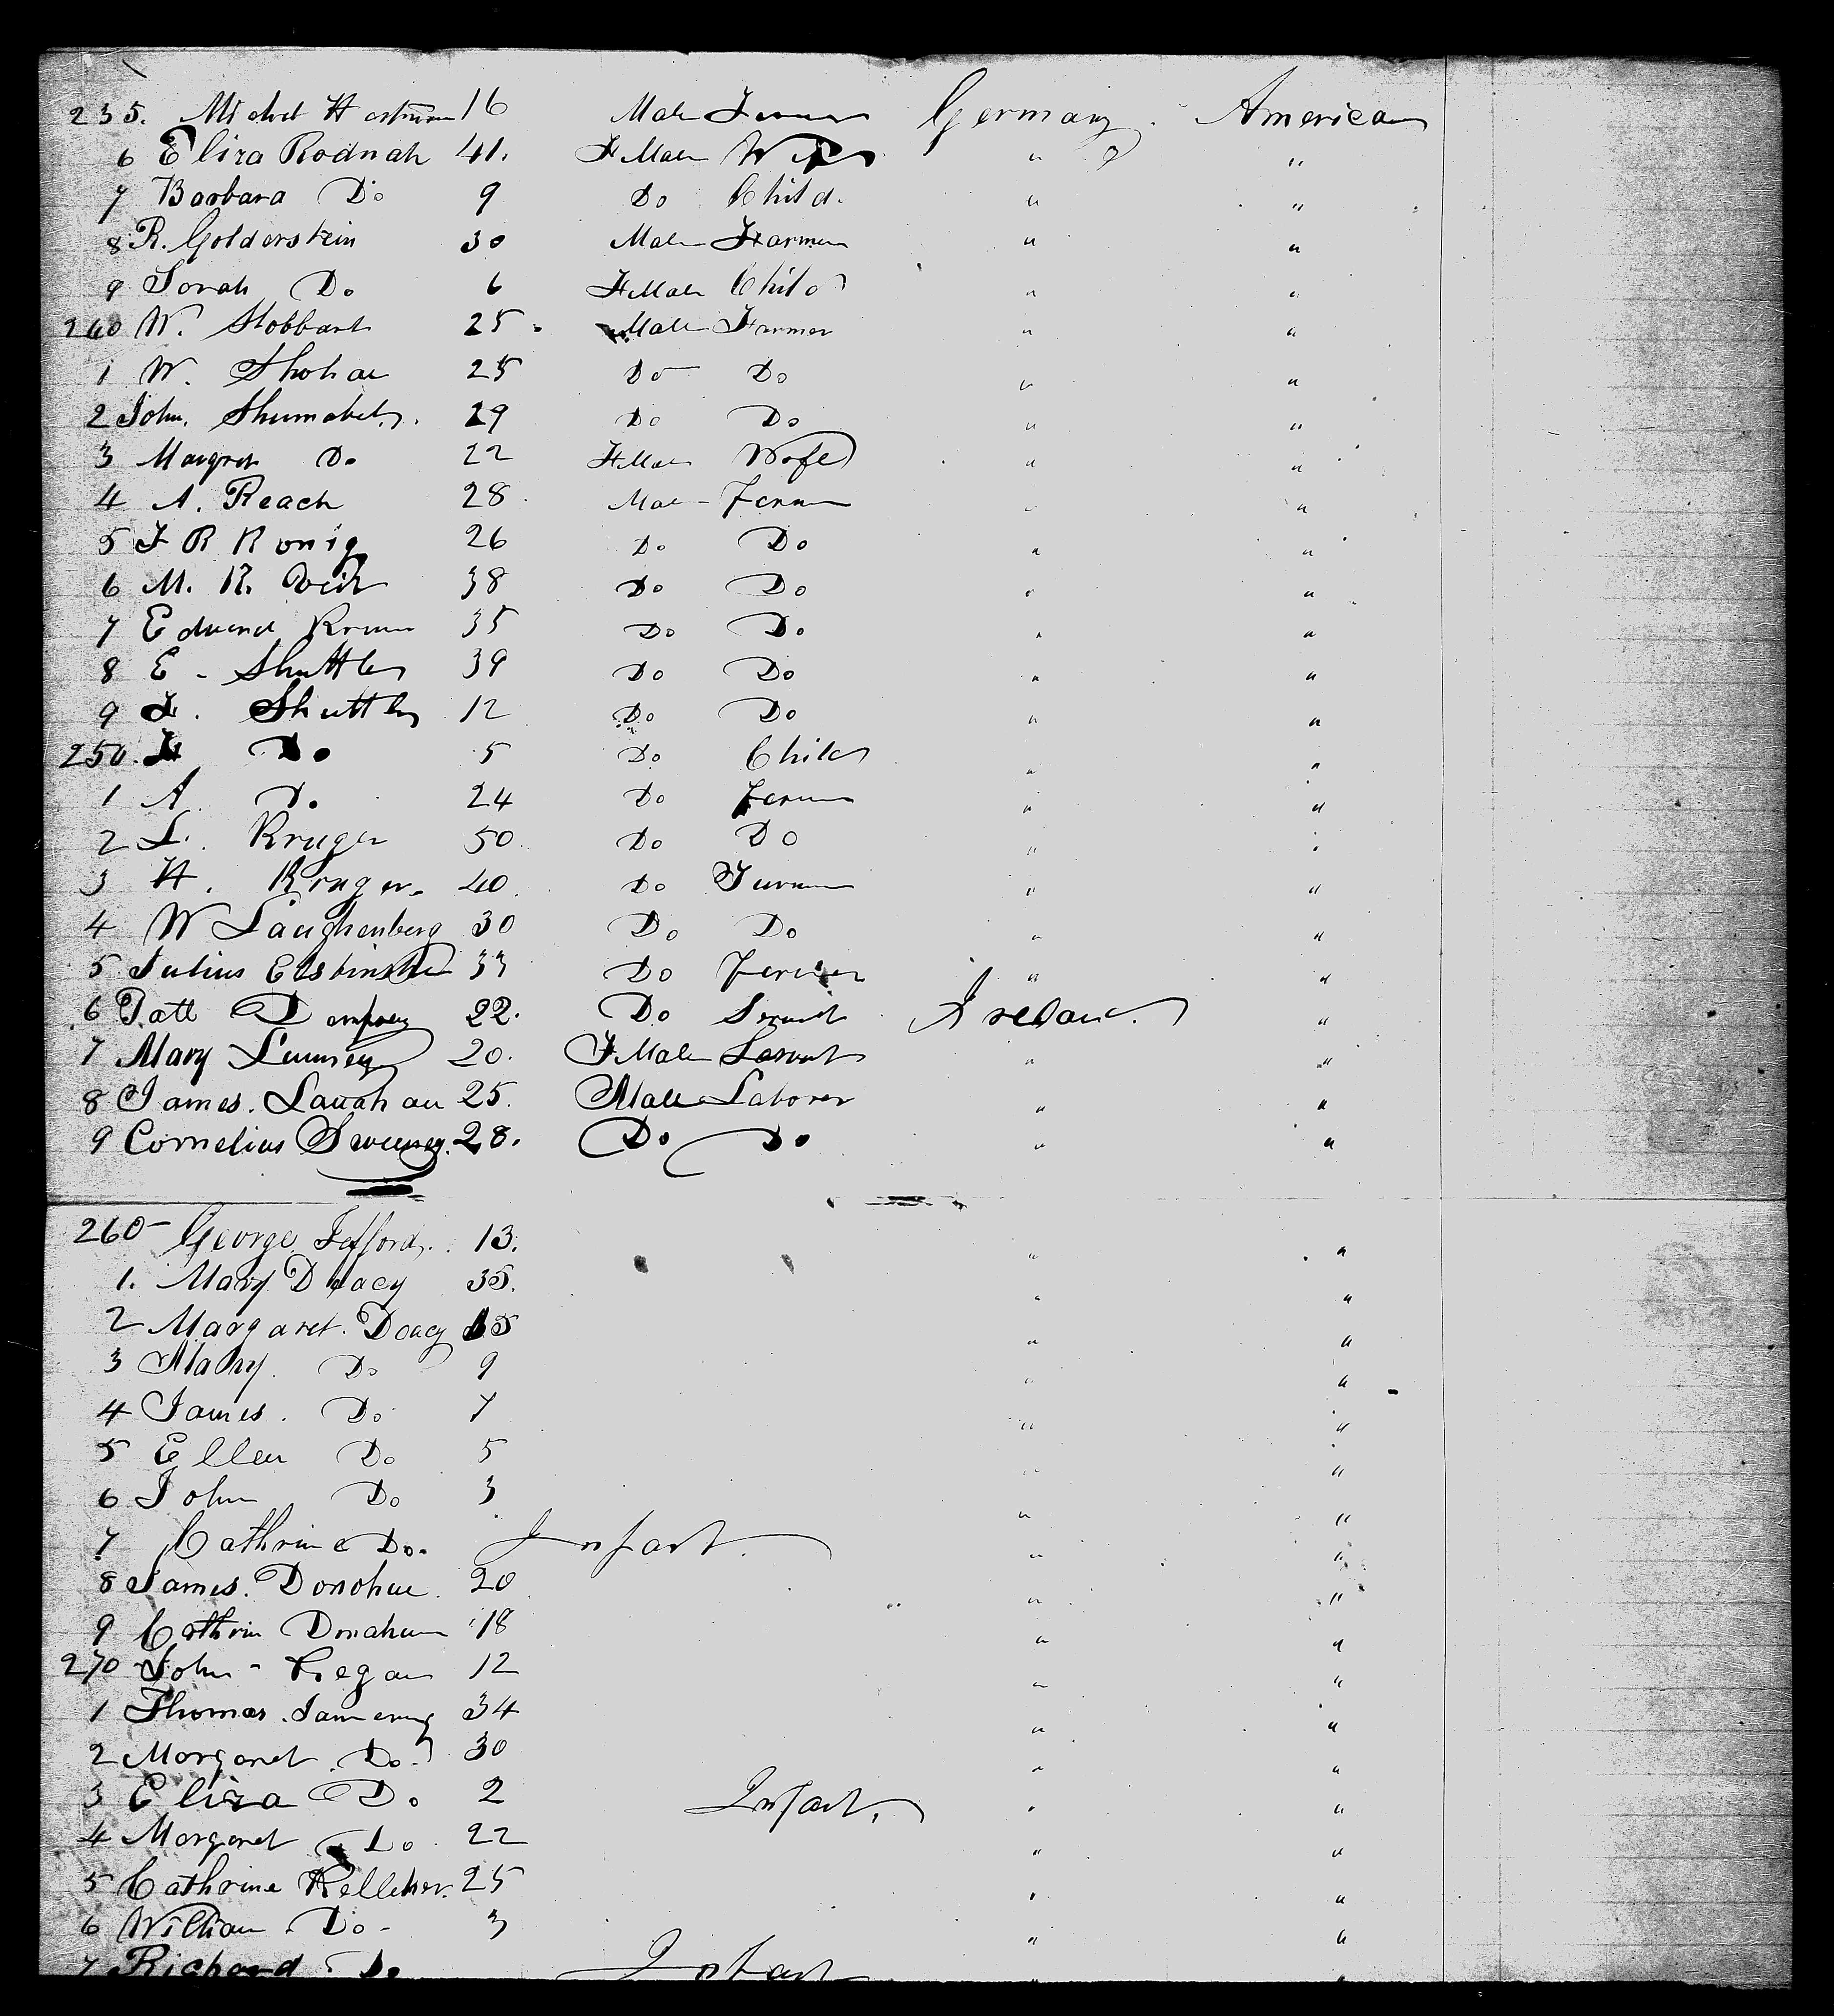 235. Michel Hartman 16 Male Farmer Germany American
6 Eliza Rodnah 41. FMale Wife " "
7 Barbara Do 9 Do Child. " "
8 R. Golderstein 30 Male Farmer " "
9 Sorah Do 6 FMale Child " "
240 W. Stobbart 25 Male Farmer " "
1 W. Shohae 25 Do Do " "
2 John. 29 Do Do " "
3 Margret Do 22 FMale Wife " "
4 A. Reach 28 Male Farmer " "
5 F R Konig 26 Do Do " "
6 M. R. Veit 38 Do Do " "
7 Edward 35 Do Do " "
8 E. Shuttler 39 Do Do " "
9 F. Shuttler 12 Do Do " "
250. Do 5 Do Child " "
1 A Do 24 Do Farmer " "
2 L. Kruger 50 Do Do " "
3 H. Kruger 40 Do Farmer " "
4 W Laughenberg 30 Do Do " "
5 Julius 33 Do Farmer " "
6 Patt Dempsey 22. Do Servant Ireland. "
7 Mary 20. FMale Servant " "
8 James. Lauahan 25. Male Laborer " "
9 Cornelius Sweeney. 28. Do Do " "
260 George Jefford. 13. " "
1. Mary Deacy 35. " "
2 Margaret. Deacy " "
3 Mary. Do 9 " "
4 James. Do 7 " "
5 Ellen Do 5 " "
6 John Do 3 " "
7 Cathrine Do. Infant. " "
8 James. Donohue. 20 " "
9 Cathrin Donahue 18 " "
270 John - Regan 12 " "
1 Thomas. 34 " "
2 Morgaret Do. 30 " "
3 Eliza Do. 2 Infant. " "
4 Morgaret Do 22 " "
5 Cathrine Kelleher. 25 " "
6 William Do - 3 " "
7 Richard Do Infant " "